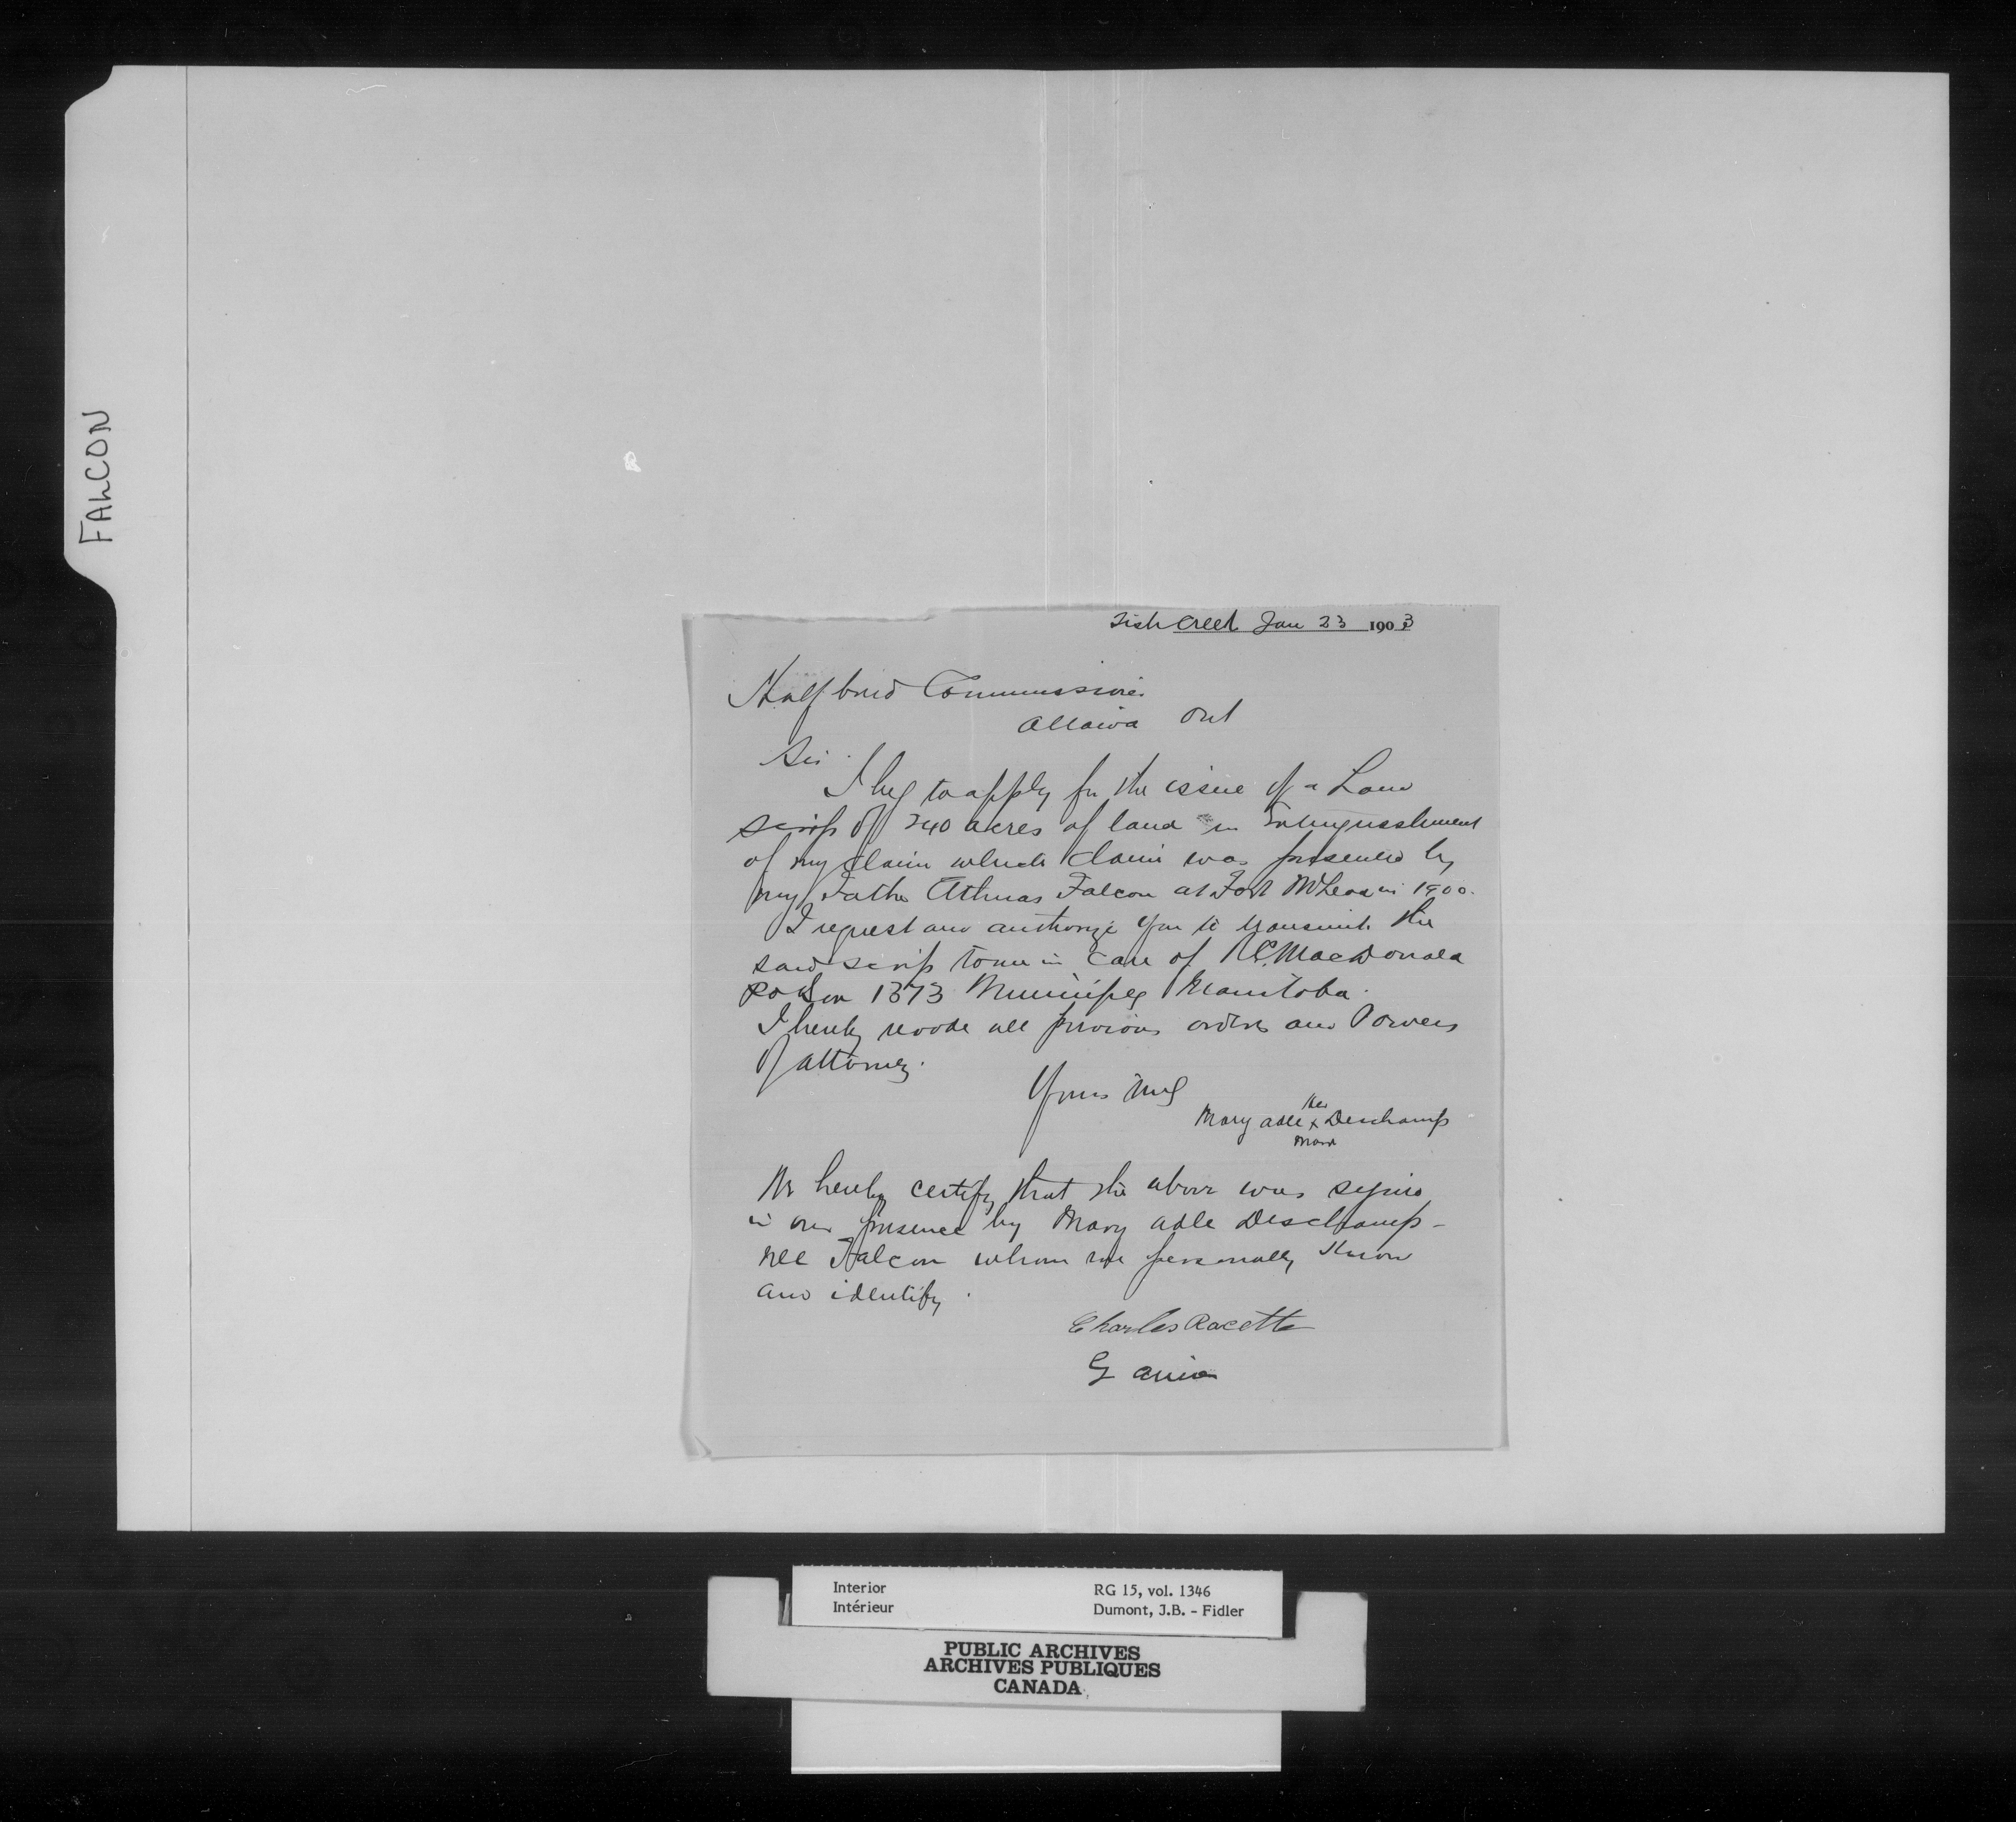 FALCON
Fish Creek Jan 23 1903
Half breed Commissioner
Ottawa Ont
Sir
I beg to apply for the issue of a Land
scrip of 240 acres of land in Extinguishment
of my claim which claim was presented by
my Father Athnas Falcon at Fort McLeod in 1900.
I request and authorize you to transmit the
said scrip to me in care of MacDonald
P O Box 1373 Winnipeg Manitoba.
I hereby revoke all previous orders and Powers
of attorney.
Yours truly
her
Mary adle x Deschamps
mark
We hereby certify that the above was signed
in our presence by Mary adle Deschamps -
nee Falcon whom we personally know
and identify.
Charles Racette
G
Interior
Intérieur
RG 15, vol. 1346
Dumont, J.B. - Fidler
PUBLIC ARCHIVES
ARCHIVES PUBLIQUES
CANADA